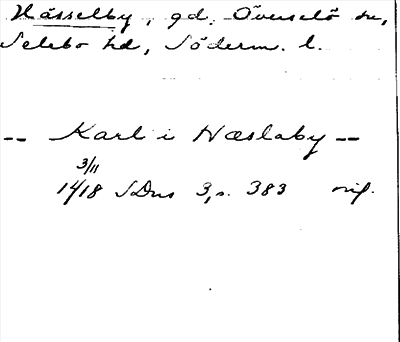 Hässelby, gd, Överselö sn,
Selebo hd, Söderm. l.
-- Karl i Hæslaby --
3/11
1418 SDns 3, s. 383 orig.